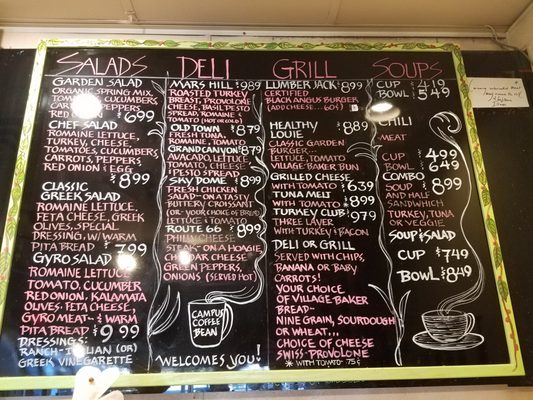 SALADS
GARDEN SALAD
ORGANIC SPRING MIX,
TOMATO, CUCUMBERS
CARROTS, PEPPERS
RED ONION $6 99
CHEF SALAD
ROMAINE LETTUCE,
TURKEY, CHEESE
TOMATOES, CUCUMBERS
CARROTS, PEPPERS
RED ONION & EGG
$8 99
CLASSIC
GREEK SALAD
ROMAINE LETTUCE,
FETA CHEESE, GREEK
OLIVES, SPECIAL
DRESSING, W/ WARM
PITA BREAD $7 99
GYRO SALAD
ROMAINE LETTUCE
TOMATO, CUCUMBER
RED ONION, KALAMATA
OLIVES, FETA CHEESE
GYRO MEAT W/ WARM
PITA BREAD $9.99
DRESSINGS:
RANCH ITALIAN (OR)
GREEK VINEGARETTE
DELI
MARS HILL $9 89
ROASTED TURKEY
BREAST, PROVOLONE
CHEESE, BASIL PESTO
SPREAD, ROMAINE &
TOMATO (HOT OR COLD)
OLD TOWN $8 79
FRESH TUNA,
ROMAINE, TOMATO
GRAND CANYON $8 79
AVOCADO, LETTUCE
TOMATO, CHEESE
& PESTO SPREAD
SKY DOME $8 99
FRESH CHICKEN
SALAD ON A TASTY
BUTTERY CROISSANT
(OR YOUR CHOICE OF BREAD)
LETTUCE & TOMATO
ROUTE 66 $8 99
PHILLY CHEESE
STEAK ON A HOAGIE
CHEDDAR CHEESE
GREEN PEPPERS,
ONIONS (SERVED HOT)
CAMPUS
COFFEE
BEAN
WELCOMES YOU!
GRILL
LUMBER JACK $8 99
CERTIFIED
BLACK ANGUS BURGER
(ADD CHEESE... 60¢)
HEALTHY
LOUIE $8 89
CLASSIC GARDEN
BURGER...
LETTUCE, TOMATO
VILLAGE BAKER BUN
GRILLED CHEESE
WITH TOMATO $6 39
TUNA MELT
WITH TOMATO $8 99
TURKEY CLUB $9 79
THREE LAYER
WITH TURKEY & BACON
DELI OR GRILL
SERVED WITH CHIPS,
BANANA OR BABY
CARROTS!
YOUR CHOICE
OF VILLAGE BAKER
BREAD~
NINE GRAIN, SOURDOUGH
OR WHEAT...
CHOICE OF CHEESE
SWISS-PROVOLONE
* WITH TOMATO .75¢
SOUPS
CUP $4 49
BOWL $5 49
CHILI
MEAT
CUP $4 99
BOWL $6 49
COMBO
SOUP $8 99
AND HALF
SANDWICH
TURKEY, TUNA
OR VEGGIE
SOUP & SALAD
CUP $7 49
BOWL $8 49